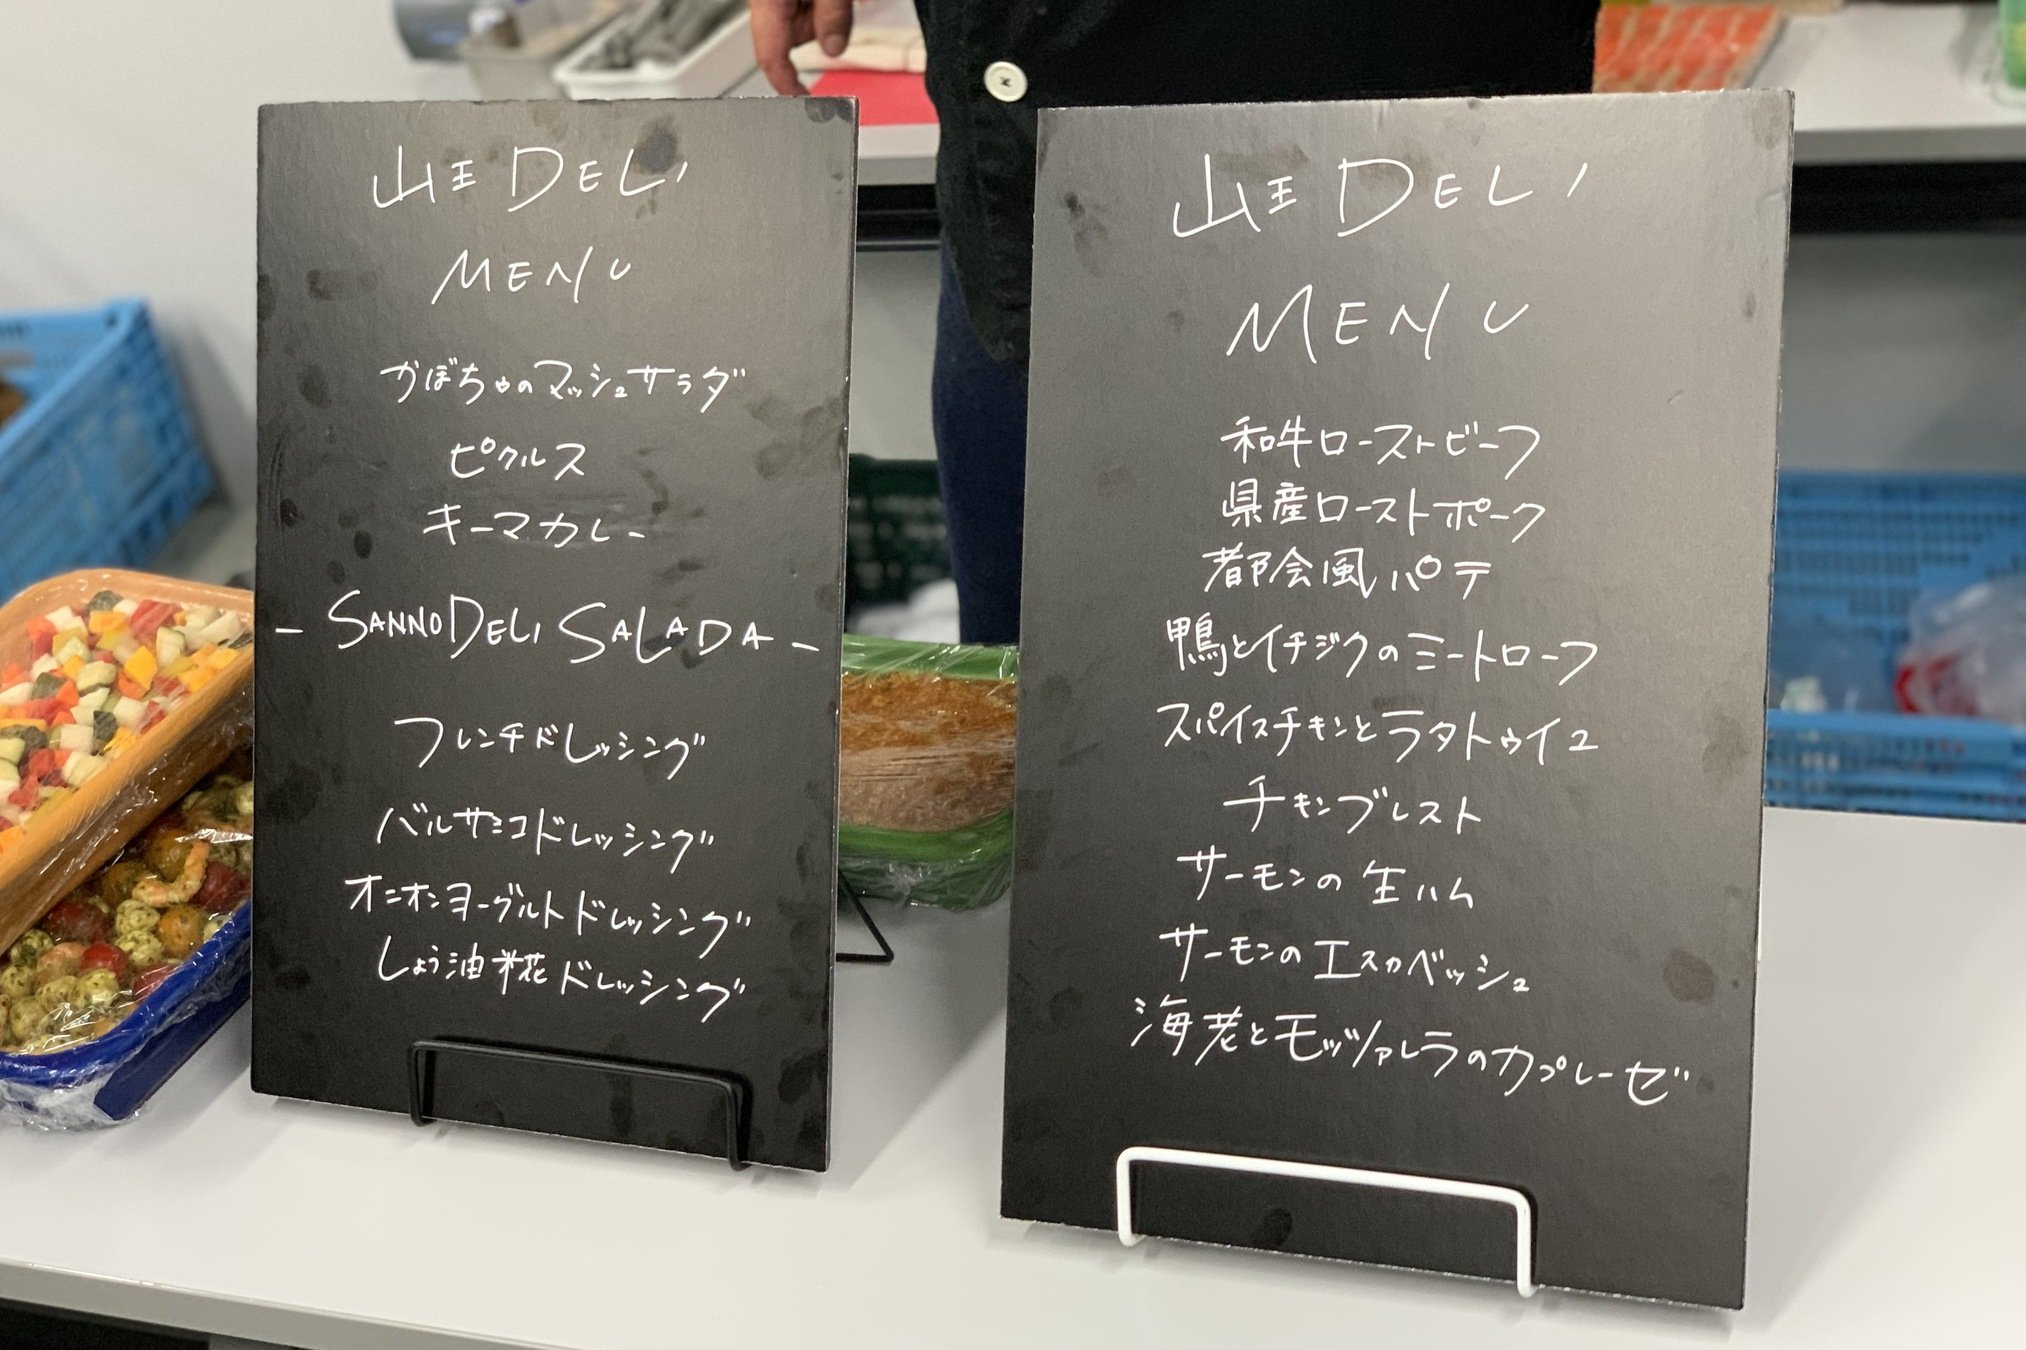 山王 DELI
MENU
かぼちゃのマッシュサラダ
ピクルス
キーマカレー
- SANNO DELI SALADA -
フレンチドレッシング
バルサミコドレッシング
オニオンヨーグルトドレッシング
しょう油糀ドレッシング
山王 DELI
MENU
和牛ローストビーフ
県産ローストポーク
都会風パテ
鴨とイチジクのミートローフ
スパイスチキンとラタトゥイユ
チキンブレスト
サーモンの生ハム
サーモンのエスカベッシュ
海老とモッツァレラのカプレーゼ